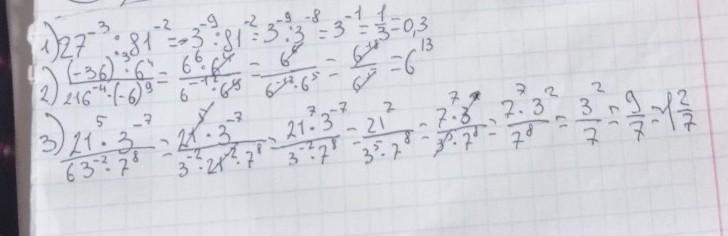 1) 27⁻³ : 81⁻² = 3⁻⁹ : 81⁻² = 3⁻⁹ : 3⁻⁸ = 3⁻¹ = 1/3 = 0,3
2) (-36)³ · 6⁴ / 216⁻⁴ · (-6)⁹ = 6⁶ · 6⁴ / 6⁻¹² · 6⁹ = 6⁶ / 6⁻¹² · 6⁵ = 6¹³
3) 21⁵ · 3⁻⁷ / 63⁻² · 7⁸ = 21⁵ · 3⁻⁷ / 3⁻² · 21⁻² · 7⁸ = 21⁷ · 3⁻⁷ / 3⁻² · 7⁸ = 21² / 3⁵ · 7⁸ = = 7⁷ · 3² / 7⁸ = 3² / 7 = 9/7 = 1 2/7